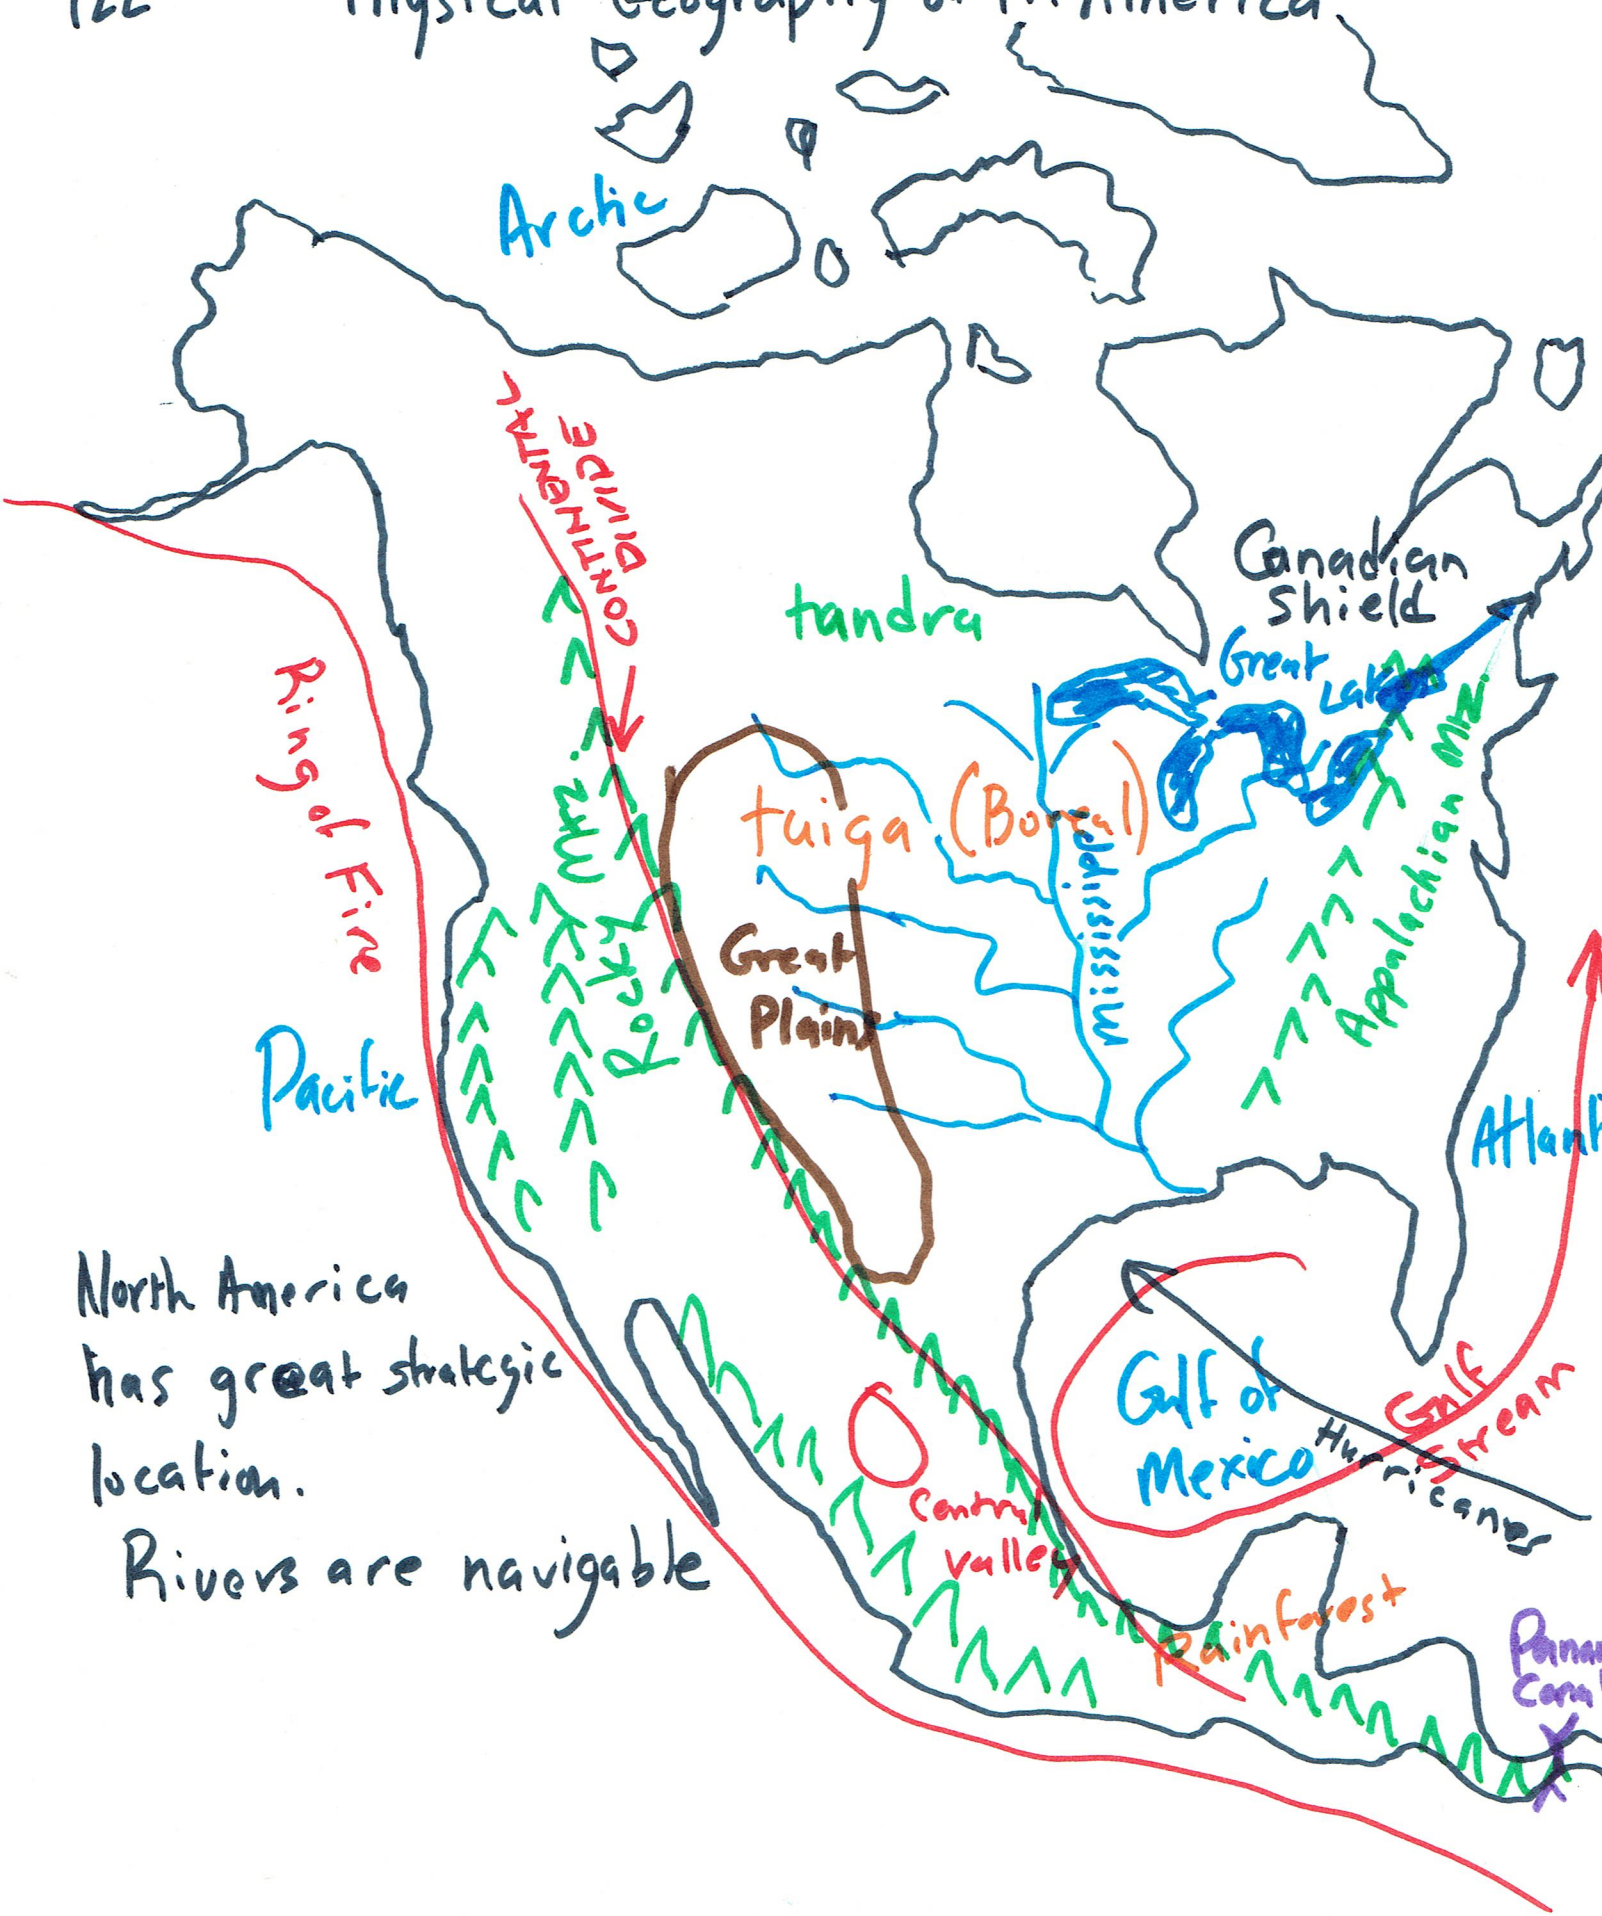 122 Physical Geography of N. America.
Arctic
CONTINENTAL
DIVIDE
tandra
Canadian
Shield
Great
Lak
Ring of Fire
Rocky Mtz.
taiga (Boreal)
Mississippi
Appalachian Mtz.
Great
Plains
Pacific
Atlanti
North America
has great strategic
location.
Rivers are navigable
Gulf of
Mexico
Gulf
Stream
Hurricanes
Central
Valley
Rainforest
Panam
Canal